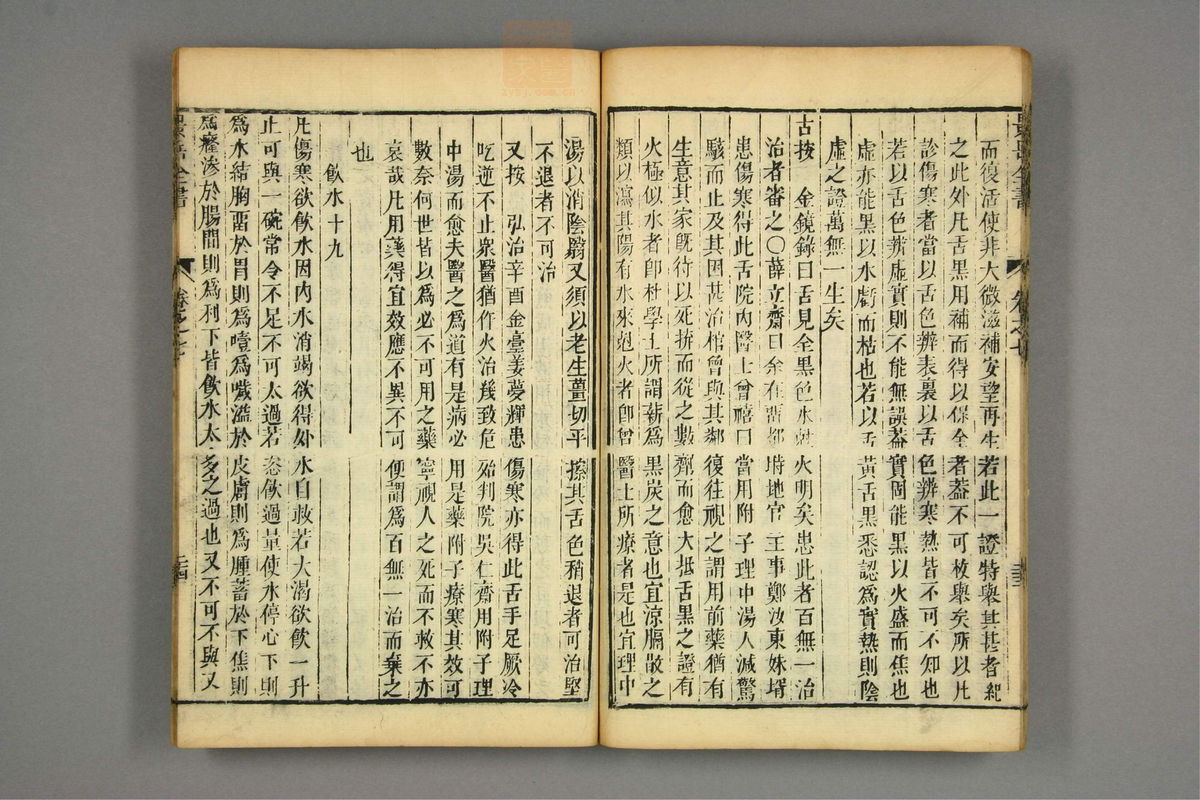 景岳全書
卷之七
三三
而復活使非大微滋補安望再生若此一證特舉其甚者紀
之此外凡舌黑用補而得以保全者蓋不可枚舉矣所以凡
診傷寒者當以舌色辨表裏以舌色辨寒熱皆不可不知也
若以舌色辨虛實則不能無誤蓋實固能黑以火盛而焦也
虛亦能黑以水虧而枯也若以舌黃舌黑悉認為實熱則陰
虛之證萬無一生矣
古按 金鏡錄曰舌見全黑色水尅火明矣患此者百無一治
治者審之○薛立齋曰余在南都時地官主事鄭汝東妹壻
患傷寒得此舌院內醫士曾禧曰當用附子理中湯人減驚
駭而止及其困甚治棺曾與其鄰復往視之謂用前藥猶有
生意其家旣待以死拚而從之數劑而愈大抵舌黑之證有
火極似水者卽杜學士所謂薪為黑炭之意也宜涼膈散之
類以瀉其陽有水來尅火者卽曾醫士所療者是也宜理中
湯以消陰翳又須以老生薑切平擦其舌色稍退者可治堅
不退者不可治
又按 弘治辛酉金臺姜夢輝患傷寒亦得此舌手足厥冷
吃逆不止衆醫猶作火治幾致危殆判院吳仁齋用附子理
中湯而愈夫醫之為道有是病必用是藥附子療寒其效可
數奈何世皆以為必不可用之藥寧視人之死而不救不亦
哀哉凡用藥得宜效應不異不可便謂為百無一治而棄之
也
飲水十九
凡傷寒欲飲水因內水消竭欲得外水自救若大渴欲飲一升
止可與一碗常令不足不可太過若恣飲過量使水停心下則
為水結胸畱於胃則為噎為噦溢於皮膚則為腫蓄於下焦則
為癃滲於腸間則為利下皆飲水太多之過也又不可不與又
景岳全書
卷之七
三四